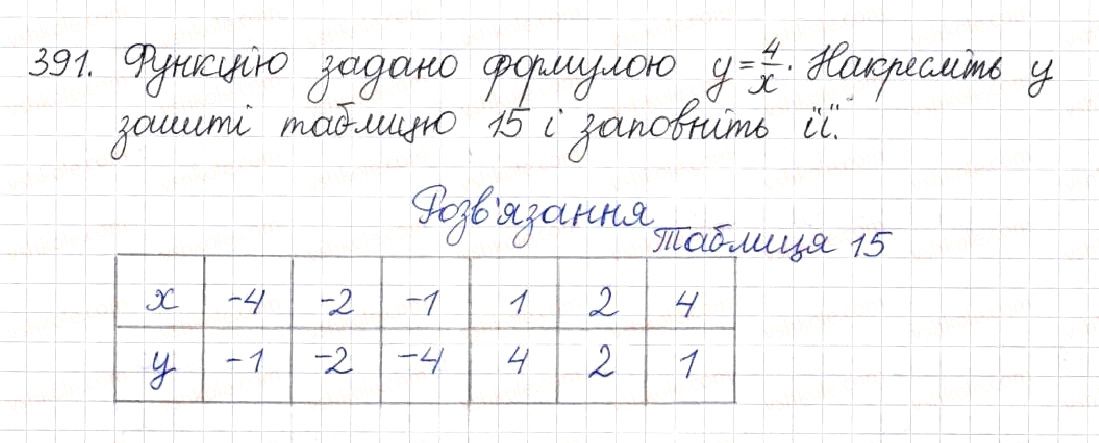 391. Функцію задано формулою y=4/x. Накресліть у
зошиті таблицю 15 і заповніть її.
Розв'язання
Таблиця 15
x -4 -2 -1 1 2 4
y -1 -2 -4 4 2 1